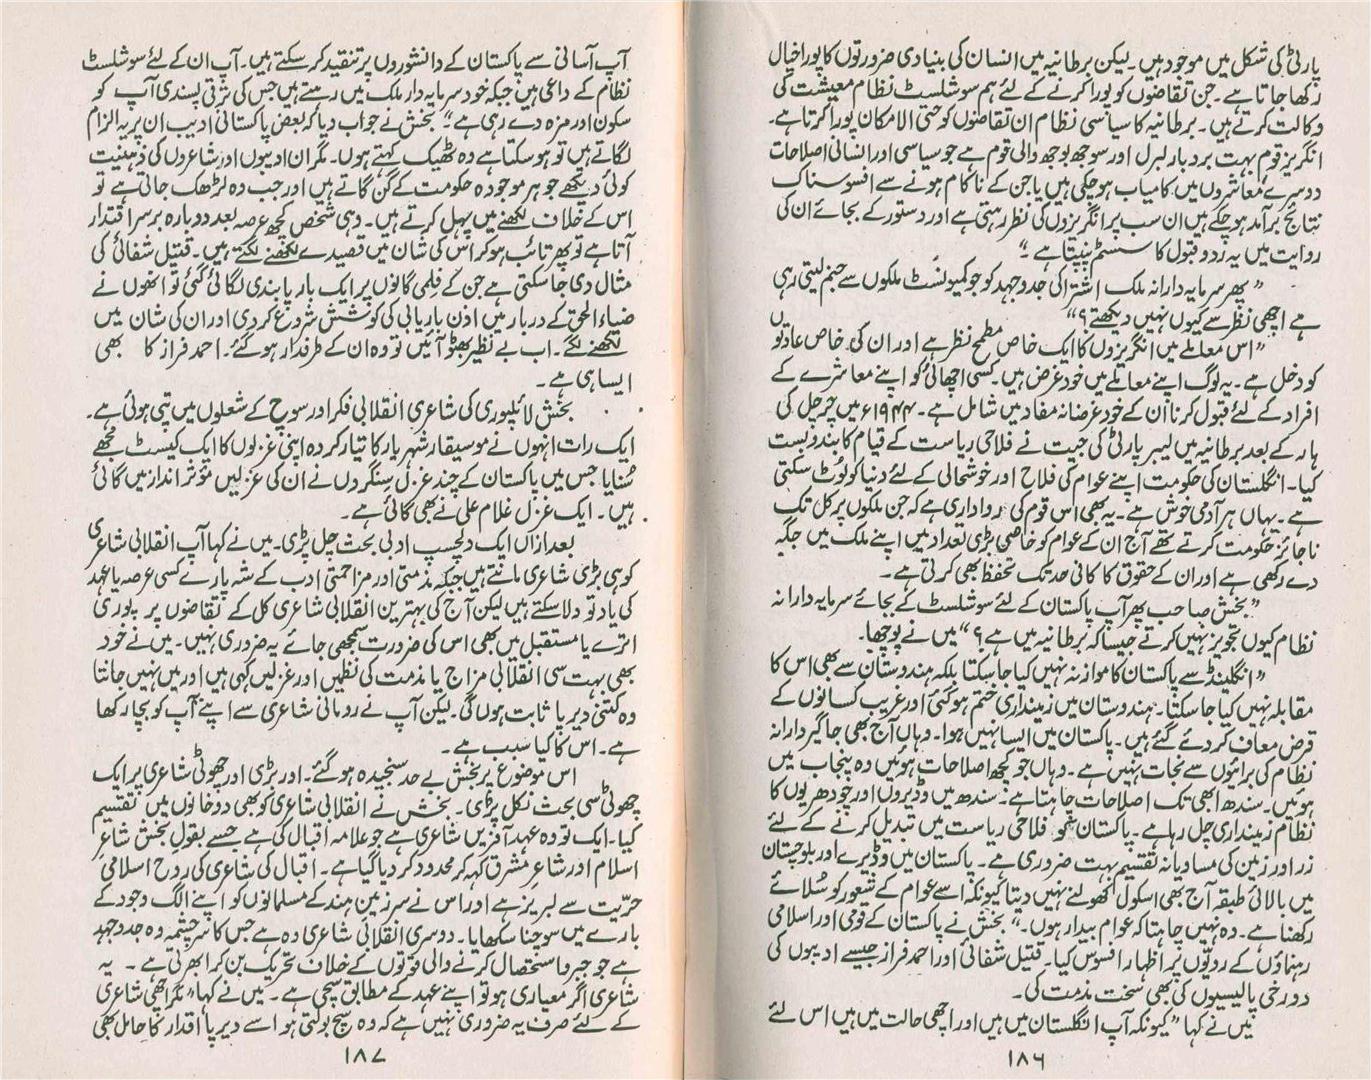 پارٹی کی شکل میں موجود ہیں۔ لیکن برطانیہ میں انسان کی بنیادی ضرورتوں کا پورا خیال
رکھا جاتا ہے۔ جن تقاضوں کو پورا کرنے کے لئے ہم سوشلسٹ نظام معیشت کی
وکالت کرتے ہیں۔ برطانیہ کا سیاسی نظام ان تقاضوں کو حتی الامکان پورا کرتا ہے۔
انگریز قوم بہت بردبار لبرل اور سوجھ بوجھ والی قوم ہے جو سیاسی اور انسانی اصلاحات
دوسرے معاشروں میں کامیاب ہو چکی ہیں یا جن کے ناکام ہونے سے افسوسناک
نتائج برآمد ہو چکے ہیں ان سب پر انگریزوں کی نظر رہتی ہے اور دستور کے بجائے ان کی
روایت میں یہ رد و قبول کا سسٹم پنپتا ہے۔“
”پھر سرمایہ دارانہ ملک اشتراکی جدوجہد کو جو کمیونسٹ ملکوں سے جنم لیتی رہی
ہے اچھی نظر سے کیوں نہیں دیکھتے؟“
”اس معاملے میں انگریزوں کا ایک خاص مطمح نظر ہے اور ان کی خاص عادتوں
کو دخل ہے۔ یہ لوگ اپنے معاملے میں خود غرض ہیں۔ کسی اچھائی کو اپنے معاشرے کے
افراد کے لئے قبول کرنا ان کے خود غرضانہ مفاد میں شامل ہے۔ ۱۹۴۴ء میں چرچل کی
ہار کے بعد برطانیہ میں لیبر پارٹی کی جیت نے فلاحی ریاست کے قیام کا بندوبست
کیا۔ انگلستان کی حکومت اپنے عوام کی فلاح اور خوشحالی کے لئے دنیا کو لوٹ سکتی
ہے۔ یہاں ہر آدمی خوش ہے۔ یہ بھی اس قوم کی رواداری ہے کہ جن ملکوں پر کل تک
ناجائز حکومت کرتے تھے آج ان کے عوام کو خاصی بڑی تعداد میں اپنے ملک میں جگہ
دے رکھی ہے اور ان کے حقوق کا کافی حد تک تحفظ بھی کرتی ہے۔
”بخش صاحب پھر آپ پاکستان کے لئے سوشلسٹ کے بجائے سرمایہ دارانہ
نظام کیوں تجویز نہیں کرتے جیسا کہ برطانیہ میں ہے؟“ میں نے پوچھا۔
”انگلینڈ سے پاکستان کا موازنہ نہیں کیا جا سکتا بلکہ ہندوستان سے بھی اس کا
مقابلہ نہیں کیا جا سکتا۔ ہندوستان میں زمینداری ختم ہو گئی اور غریب کسانوں کے
قرض معاف کر دئے گئے ہیں۔ پاکستان میں ایسا نہیں ہوا۔ وہاں آج بھی جاگیردارانہ
نظام کی برائیوں سے نجات نہیں ہے۔ وہاں جو کچھ اصلاحات ہوئیں وہ پنجاب میں
ہوئیں۔ سندھ ابھی تک اصلاحات چاہتا ہے۔ سندھ میں وڈیروں اور چودھریوں کا
نظام زمینداری چل رہا ہے۔ پاکستان کو فلاحی ریاست میں تبدیل کرنے کے لئے
زر اور زمین کی مساویانہ تقسیم بہت ضروری ہے۔ پاکستان میں وڈیرے اور بلوچستان
میں بالائی طبقہ آج بھی اسکول کھولنے نہیں دیتا کیونکہ اسے عوام کے شعور کو سلائے
رکھنا ہے۔ وہ نہیں چاہتا کہ عوام بیدار ہوں۔“ بخش نے پاکستان کے قومی اور اسلامی
رہنماؤں کے رویوں پر اظہار افسوس کیا۔ قتیل شفائی اور احمد فراز جیسے ادیبوں کی
دورخی پالیسیوں کی بھی سخت مذمت کی۔
میں نے کہا ”کیونکہ آپ انگلستان میں ہیں اور اچھی حالت میں ہیں اس لئے
۱۸۶
آپ آسانی سے پاکستان کے دانشوروں پر تنقید کر سکتے ہیں۔ آپ ان کے لئے سوشلسٹ
نظام کے داعی ہیں جبکہ خود سرمایہ دار ملک میں رہتے ہیں جس کی ترقی پسندی آپ کو
سکون اور مزہ دے رہی ہے۔“ بخش نے جواب دیا کہ بعض پاکستانی ادیب ان پر یہ الزام
لگاتے ہیں تو ہو سکتا ہے وہ ٹھیک کہتے ہوں۔ مگر ان ادیبوں اور شاعروں کی ذہنیت
کوئی دیکھے جو ہر موجودہ حکومت کے گن گاتے ہیں اور جب وہ لڑھک جاتی ہے تو
اس کے خلاف لکھنے میں پہل کرتے ہیں۔ وہی شخص کچھ عرصہ بعد دوبارہ برسر اقتدار
آتا ہے تو پھر تائب ہو کر اس کی شان میں قصیدے لکھنے لگتے ہیں۔ قتیل شفائی کی
مثال دی جا سکتی ہے جن کے فلمی گانوں پر ایک بار پابندی لگائی گئی تو انھوں نے
ضیاء الحق کے دربار میں اذن باریابی کی کوشش شروع کر دی اور ان کی شان میں
لکھنے لگے۔ اب بے نظیر بھٹو آئیں تو وہ ان کے طرفدار ہو گئے۔ احمد فراز کا بھی
ایسا ہی ہے۔
بخش لائلپوری کی شاعری انقلابی فکر اور سوچ کے شعلوں میں تپی ہوئی ہے۔
ایک رات انہوں نے موسیقار شہریار کا تیار کردہ اپنی غزلوں کا ایک کیسٹ مجھے
سنایا جس میں پاکستان کے چند غزل سنگروں نے ان کی غزلیں مؤثر انداز میں گائی
ہیں۔ ایک غزل غلام علی نے بھی گائی ہے۔
بعد ازاں ایک دلچسپ ادبی بحث چل پڑی۔ میں نے کہا آپ انقلابی شاعری
کو ہی بڑی شاعری مانتے ہیں جبکہ مذمتی اور مزاحمتی ادب کے شہ پارے کسی عرصہ یا عہد
کی یاد تو دلا سکتے ہیں لیکن آج کی بہترین انقلابی شاعری کل کے تقاضوں پر پوری
اترے یا مستقبل میں بھی اس کی ضرورت سمجھی جائے یہ ضروری نہیں۔ میں نے خود
بھی بہت سی انقلابی مزاج یا مذمت کی نظمیں اور غزلیں کہی ہیں اور میں نہیں جانتا
وہ کتنی دیر پا ثابت ہوں گی۔ لیکن آپ نے رومانی شاعری سے اپنے آپ کو بچا رکھا
ہے۔ اس کا کیا سبب ہے۔
اس موضوع پر بخش بے حد سنجیدہ ہو گئے۔ اور بڑی اور چھوٹی شاعری پر ایک
چھوٹی سی بحث نکل پڑی۔ بخش نے انقلابی شاعری کو بھی دو خانوں میں تقسیم
کیا۔ ایک تو وہ عہد آفریں شاعری ہے جو علامہ اقبال کی ہے جسے بقول بخش شاعر
اسلام اور شاعر مشرق کہہ کر محدود کر دیا گیا ہے۔ اقبال کی شاعری کی روح اسلامی
حریت سے لبریز ہے اور اس نے سرزمین ہند کے مسلمانوں کو اپنے الگ وجود کے
بارے میں سوچنا سکھایا۔ دوسری انقلابی شاعری وہ ہے جس کا سرچشمہ وہ جدوجہد
ہے جو جبر و استحصال کرنے والی قوتوں کے خلاف تحریک بن کر ابھرتی ہے۔ یہ
شاعری اگر معیاری ہو تو اپنے عہد کے مطابق سچی ہے۔ میں نے کہا ”مگر اچھی شاعری
کے لئے صرف یہ ضروری نہیں ہے کہ وہ سچ بولتی ہو اسے دیر پا اقدار کا حامل بھی
۱۸۷